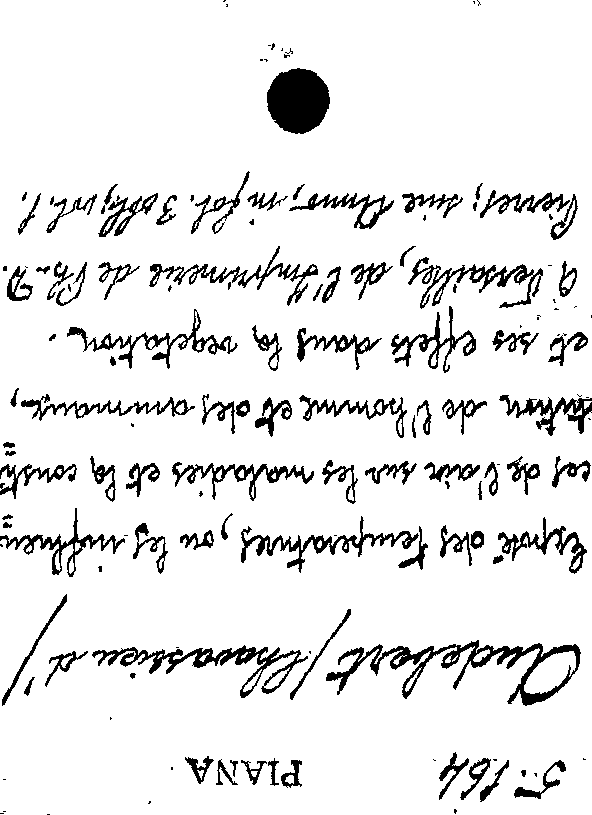 5-164 PIANA
Audebert /Chavassieu d'/
Exposé des Températures, ou les influen=
ces de l'air sur les maladies et la consti=
tution de l'homme et des animaux,
et ses effets dans la vegetation.
A Versailles, de l'Imprimerie de Ph.-D.
Pierres; sine Anno; in fol. 3 obbl; vol. 1.